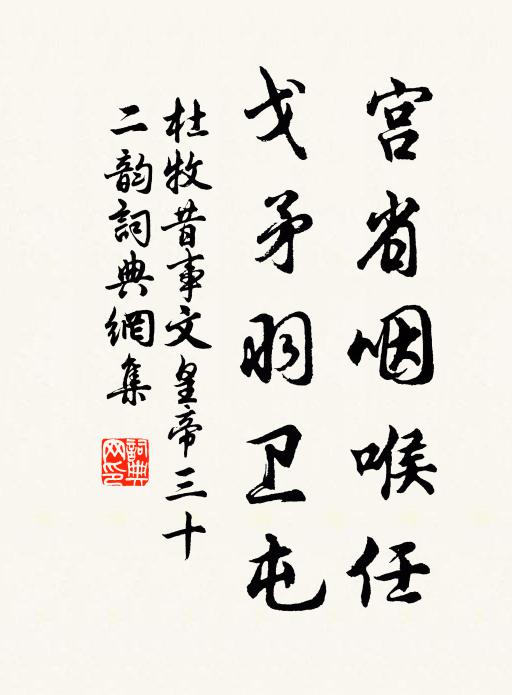 宫省咽喉任
戈矛羽卫屯
杜牧昔事文皇帝三十
二韵詞典網集
詞典
网印